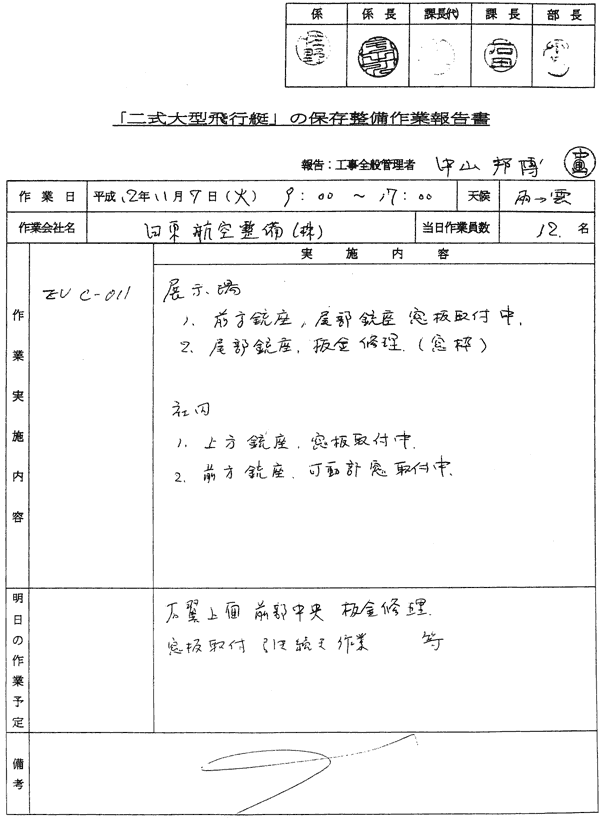 係 係長 課長代 課長 部長
「二式大型飛行艇」の保存整備作業報告書
報告：工事全般管理者 中山 邦博
作業日 平成12年11月7日（火） 9：00 ～ 17：00 天候 雨→雲
作業会社名 日東航空整備（株） 当日作業員数 12. 名
実施内容
作業実施内容
EU C-011
展示場
1. 前方銃座，尾部銃座 窓板取付中．
2. 尾部銃座．板金修理．（窓枠）
社内
1. 上方銃座．窓板取付中．
2. 前方銃座．可動計窓取付中．
明日の作業予定
右翼上面 前部中央 板金修理．
窓板取付 引き続き作業 等
備考